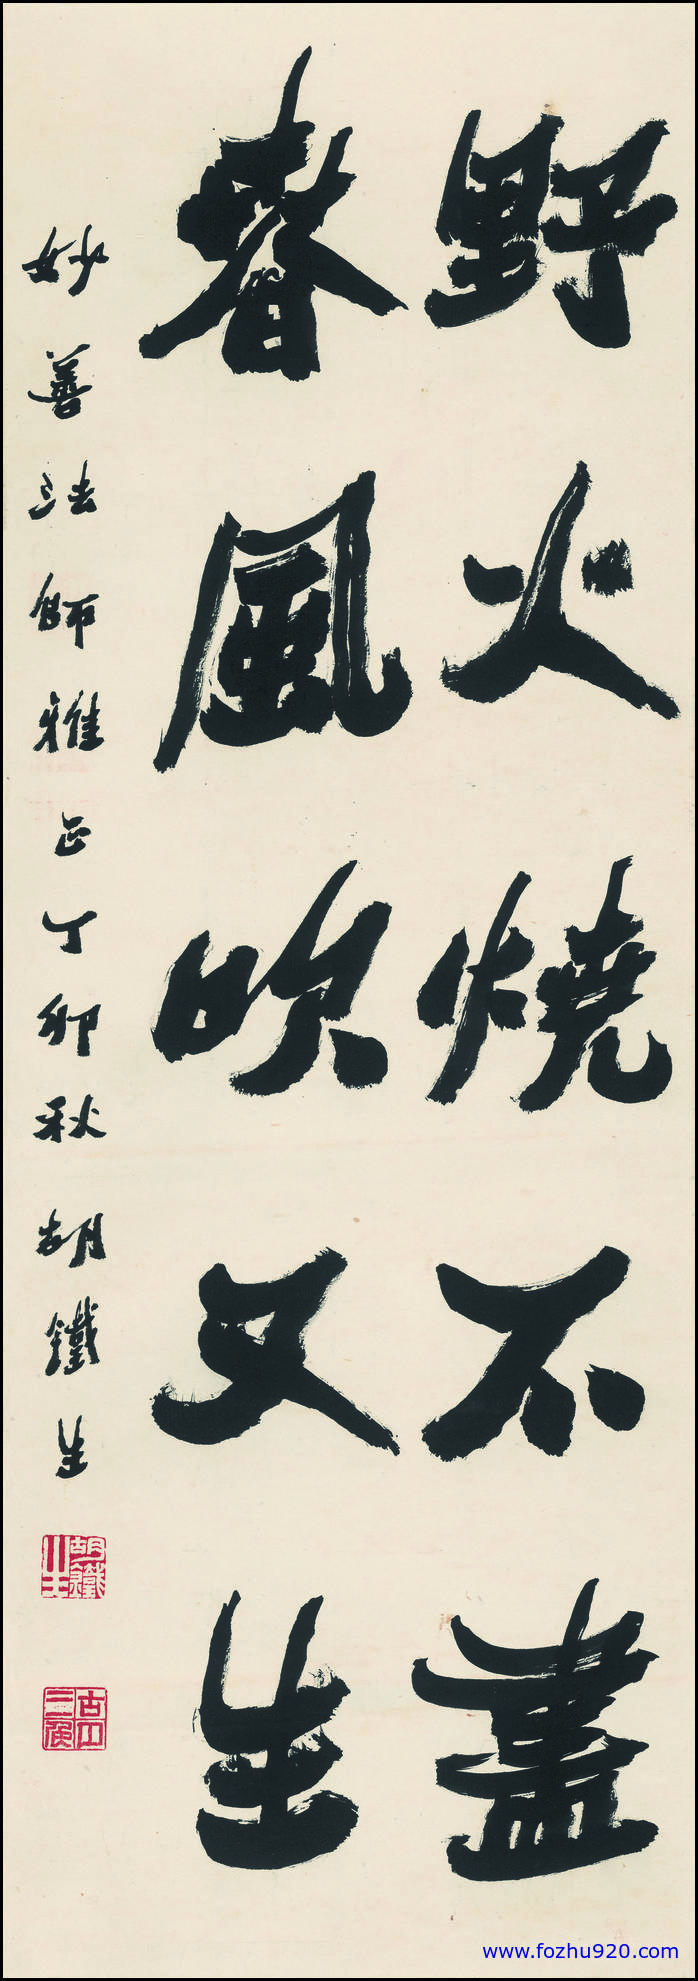 野火燒不盡
春風吹又生
妙善法師雅正丁卯秋胡鐵生
胡鐵生
www.fozhu920.com